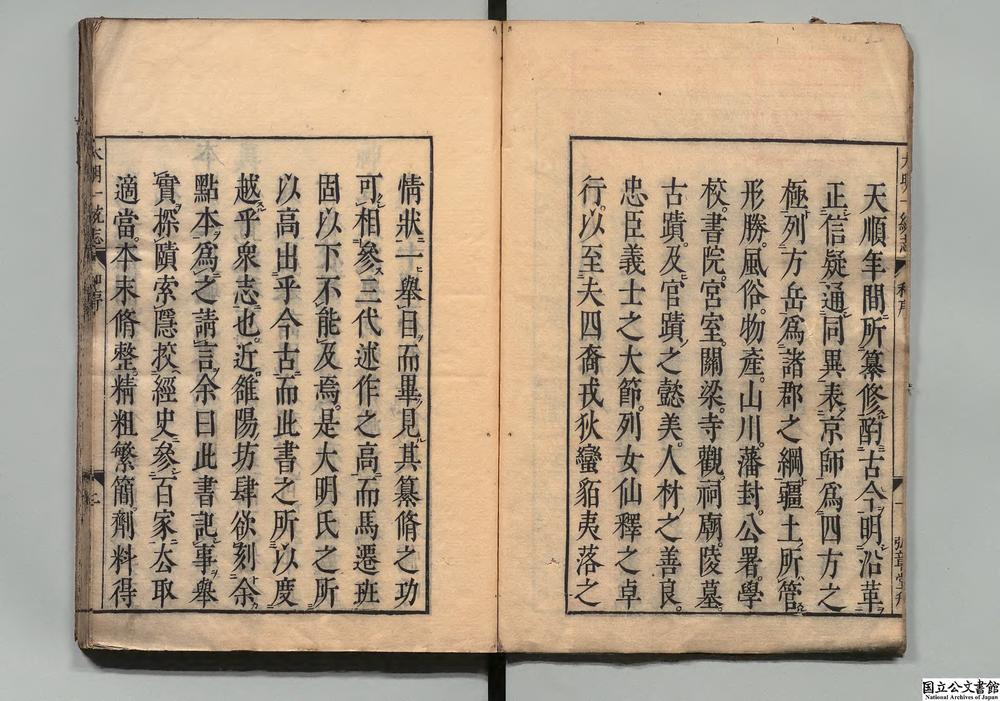 天順年間所纂修酌古今明沿革
正信疑通同異表京師爲四方之
極列方岳爲諸郡之綱疆土所管
形勝風俗物產山川藩封公署學
校書院宮室關梁寺觀祠廟陵墓
古蹟及官蹟之懿美人材之善良
忠臣義士之大節列女仙釋之卓
行以至夫四裔戎狄蠻貊夷落之
情狀一舉目而畢見其纂脩之功
可相參三代述作之高而馬遷班
固以下不能及焉是大明氏之所
以高出乎今古而此書之所以度
越乎衆志也近雒陽坊肆欲刻余
點本爲之請言余曰此書記事舉
實探賾索隱挍經史參百家公取
適當本末脩整精粗繁簡劑料得
大明一統志
二
国立公文書館
National Archives of Japan